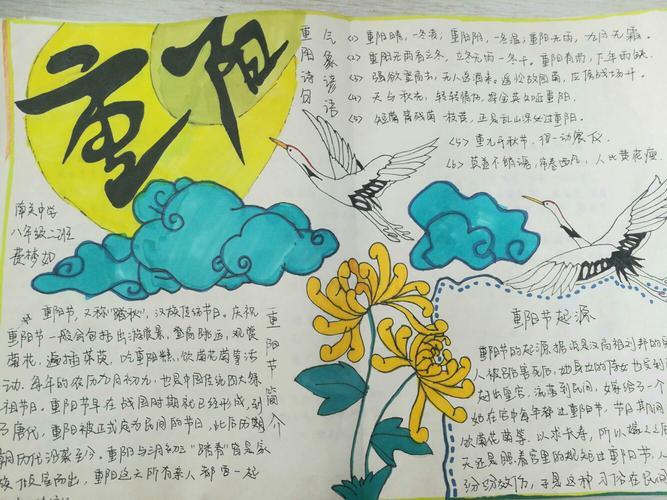 重阳
重阳诗句
气象谚语
(1) 重阳晴,一冬凌;重阳阴,一冬温;重阳无雨,九月无霜。
(2) 重阳无雨看立冬,立冬无雨一冬干。重阳有雨,下年雨缺
(3) 强欲登高去,无人送酒来。遥怜故园菊,应傍战场开。
(4) 天与秋光,转转情伤,探金英知近重阳。
(5) 短篱残菊一枝黄,正是乱山深处过重阳。
(5) 重九开秋节,得一动宸衣
(6) 莫道不销魂,帘卷西风,人比黄花瘦
南关中学
八年级二班
费梦如
重阳节简介
重阳节,又称"踏秋",汉族传统节日。庆祝
重阳节一般会包括出游赏景、登高眺远、观赏
菊花、遍插茱萸、吃重阳糕、饮菊花酒等活
动。每年的农历九月初九,也是中国传统四大祭
祖节日。重阳节早在战国时期就已经形成,到
了唐代,重阳被正式定为民间的节日,此后历
朝历代沿袭至今。重阳与三月初三"踏春"皆是家
族倾室而出,重阳这天所有亲人都要一起
重阳节起源
重阳节的起源据说是汉高祖刘邦的
人被
后,她身边的侍女也
赶出皇宫,流落到民间,嫁给了一个
她在宫中每年都过重阳节,节日其间
饮菊花酒等,以求长寿,所以
天还是照着宫里的规矩过重阳节,人
纷纷效仿,于是这种习俗在民